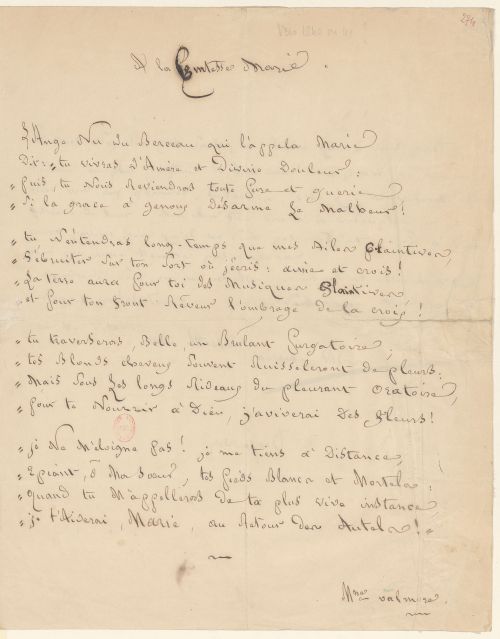 À la Comtesse Marie.
L'Ange Nu du Berceau qui l'appela Marie
Dit: « tu vivras d'Amère et Divine Douleur:
« puis, tu Nous Reviendras toute pure et guérie
« Si la grace à genoux Désarme Le Malheur!
« tu N'entendras long-temps que mes Ailes Plaintives,
« S'ébruiter sur ton Sort où j'écris: aime et crois!
« La terre aura pour toi des Musiques Plaintives
« et pour ton front Rêveur l'ombrage de la croix!
« tu traverseras, Belle, un Brulant Purgatoire;
« tes Blonds cheveux Souvent Ruisseleront de pleurs:
« Mais sous Les longs Rideaux du pleurant Oratoire,
« pour te Nourrir à Dieu, j'aviverai Des fleurs!
« je Ne M'éloigne pas! je me tiens à Distance,
« Epiant, ô Ma Soeur, tes pieds Blancs et Mortels:
« quand tu M'appelleras de ta plus vive instance,
« je t'Aiderai, Marie, au Retour des Autels! »
Mme valmore.